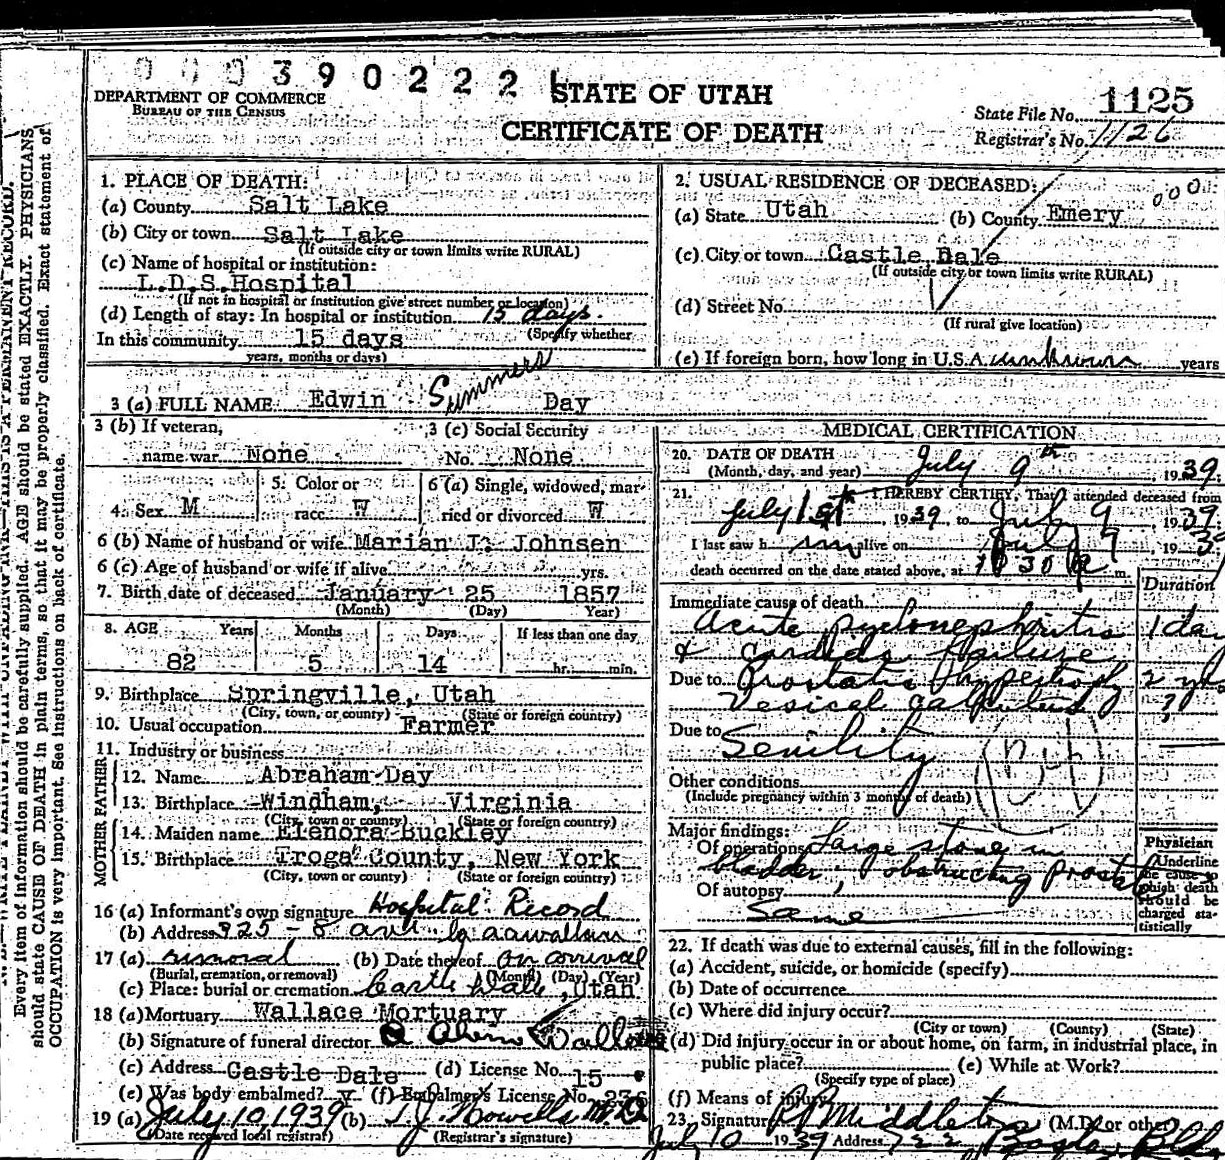 000390222
DEPARTMENT OF COMMERCE
BUREAU OF THE CENSUS
STATE OF UTAH
CERTIFICATE OF DEATH
State File No. 1125
Registrar's No. 1126
Every item of information should be carefully supplied. AGE should be stated EXACTLY. PHYSICIANS
should state CAUSE OF DEATH in plain terms, so that it may be properly classified. Exact statement of
OCCUPATION is very important. See instructions on back of certificate.
1. PLACE OF DEATH:
(a) County Salt Lake
(b) City or town Salt Lake
(If outside city or town limits write RURAL)
(c) Name of hospital or institution:
L.D.S. Hospital
(If not in hospital or institution give street number or location)
(d) Length of stay: In hospital or institution 15 days.
(Specify whether
In this community 15 days
years, months or days)
2. USUAL RESIDENCE OF DECEASED:
(a) State Utah (b) County Emery
(c) City or town Castle Dale
(If outside city or town limits write RURAL)
(d) Street No.
(If rural give location)
(e) If foreign born, how long in U.S.A. unknown years
3 (a) FULL NAME Edwin Summers Day
3 (b) If veteran, name war None
3 (c) Social Security No. None
4. Sex M
5. Color or race W
6 (a) Single, widowed, married or divorced W
6 (b) Name of husband or wife Marian J. Johnsen
6 (c) Age of husband or wife if alive yrs.
7. Birth date of deceased January 25 1857
(Month) (Day) Year)
8. AGE Years Months Days If less than one day
82 5 14 hr. min.
9. Birthplace Springville, Utah
(City, town, or county) (State or foreign country)
10. Usual occupation Farmer
11. Industry or business
FATHER
12. Name Abraham Day
13. Birthplace Windham, Virginia
(City, town or county) (State or foreign country)
MOTHER
14. Maiden name Elenora Buckley
15. Birthplace Troga County, New York
(City, town or county) (State or foreign country)
16 (a) Informant's own signature Hospital Record
(b) Address 325 - 8 ave
17 (a) removal (b) Date thereof on arrival
(Burial, cremation, or removal) (Month) (Day) (Year)
(c) Place: burial or cremation Castle Dale, Utah
18 (a) Mortuary Wallace Mortuary
(b) Signature of funeral director
(c) Address Castle Dale (d) License No. 15
(e) Was body embalmed? (f) Embalmer's License No.
19 (a) July 10, 1939 (b) T.J. Howells M.D.
(Date received local registrar) (Registrar's signature)
MEDICAL CERTIFICATION
20. DATE OF DEATH
(Month, day, and year) July 9th, 1939.
21. I HEREBY CERTIFY, That I attended deceased from
July 1st, 1939, to July 9, 1939.
I last saw him alive on July 9, 1939
death occurred on the date stated above, at 1030 P m.
Duration
Immediate cause of death
Acute pyelonephritis 1 day
& cardiac failure
Due to Prostatic hypertrophy 2 yrs
Vesical Calculus ?
Due to Senility
Other conditions
(Include pregnancy within 3 months of death)
Major findings:
Of operations Large stone in
bladder, obstructing Prostate
Of autopsy
Same
Physician
Underline
the cause to
which death
should be
charged sta-
tistically
22. If death was due to external causes, fill in the following:
(a) Accident, suicide, or homicide (specify)
(b) Date of occurrence
(c) Where did injury occur?
(City or town) (County) (State)
(d) Did injury occur in or about home, on farm, in industrial place, in
public place? (e) While at Work?
(Specify type of place)
(f) Means of injury
23. Signature Middleton (M.D. or other)
July 10 1939 Address 722 Boston Bldg